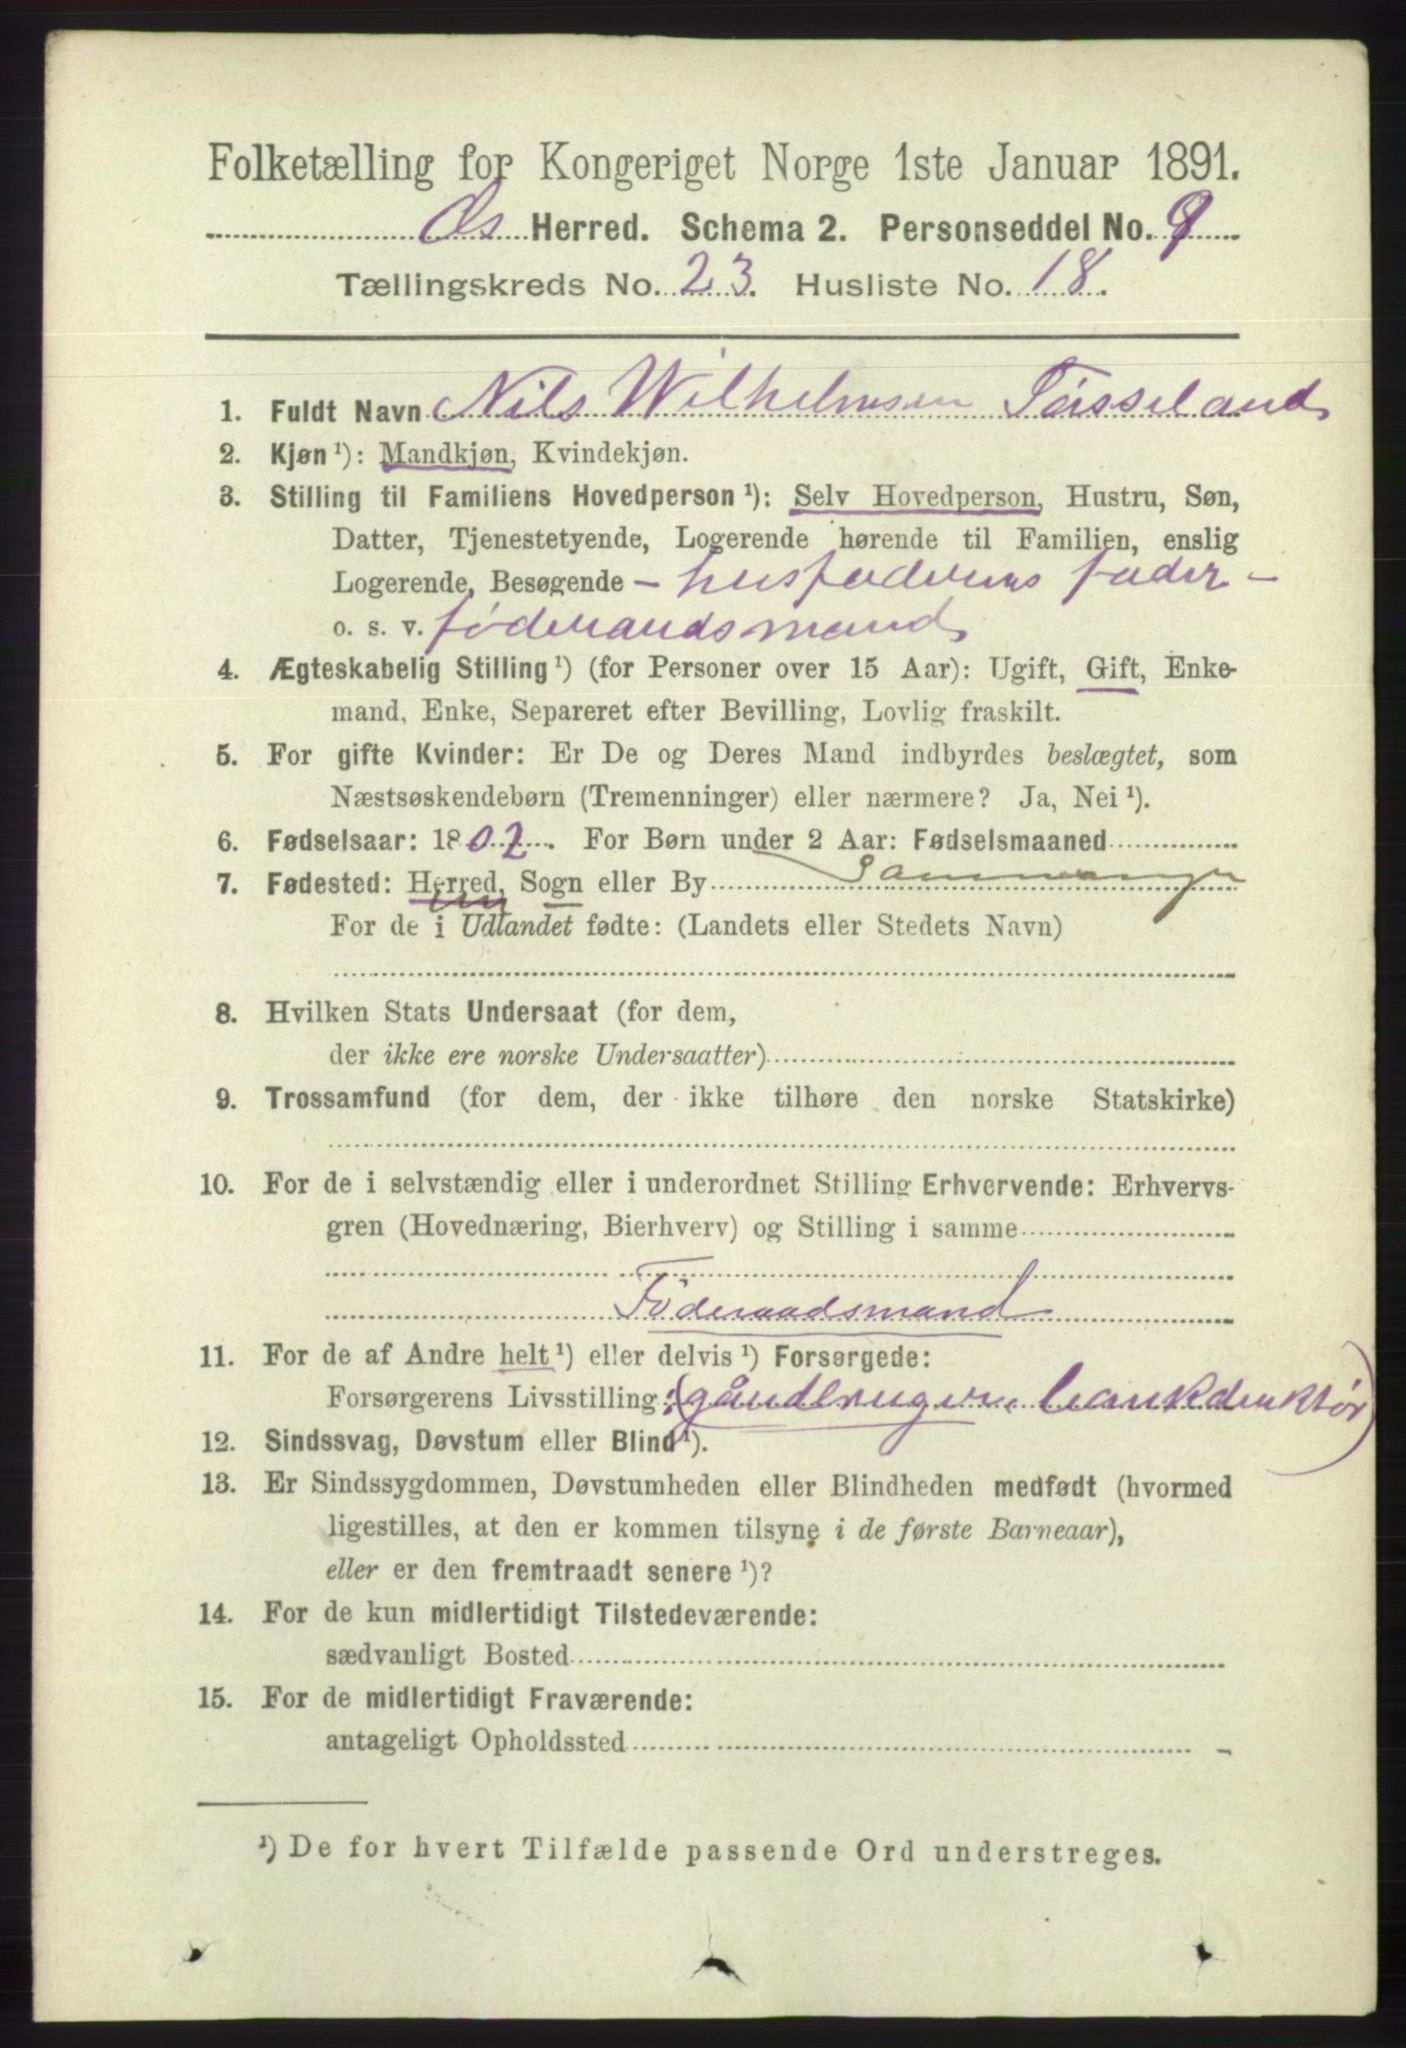 Folketælling for Kongeriget Norge 1ste Januar 1891.
Os Herred. Schema 2. Personseddel No. 9
Tællingskreds No. 23. Husliste No. 18.
1. Fuldt Navn Nils Wilhelmsen Tøsseland
2. Kjøn ¹): Mandkjøn, Kvindekjøn.
3. Stilling til Familiens Hovedperson ¹): Selv Hovedperson, Hustru, Søn,
Datter, Tjenestetyende, Logerende hørende til Familien, enslig
Logerende, Besøgende – husfaderens fader –
o. s. v. føderaadsmand
4. Ægteskabelig Stilling ¹) (for Personer over 15 Aar): Ugift, Gift, Enke-
mand, Enke, Separeret efter Bevilling, Lovlig fraskilt.
5. For gifte Kvinder: Er De og Deres Mand indbyrdes beslægtet, som
Næstsøskendebørn (Tremenninger) eller nærmere? Ja, Nei ¹).
6. Fødselsaar: 1802. For Børn under 2 Aar: Fødselsmaaned
7. Fødested: Herred, Sogn eller By Sammanger
For de i Udlandet fødte: (Landets eller Stedets Navn)
8. Hvilken Stats Undersaat (for dem,
der ikke ere norske Undersaatter)
9. Trossamfund (for dem, der ikke tilhøre den norske Statskirke)
10. For de i selvstændig eller i underordnet Stilling Erhvervende: Erhvervs-
gren (Hovednæring, Bierhverv) og Stilling i samme
Föderaadsmand
11. For de af Andre helt ¹) eller delvis ¹) Forsørgede:
Forsørgerens Livsstilling: (gårdbruger, bankdirektør)
12. Sindssvag, Døvstum eller Blind ¹).
13. Er Sindssygdommen, Døvstumheden eller Blindheden medfødt (hvormed
ligestilles, at den er kommen tilsyne i de første Barneaar),
eller er den fremtraadt senere ¹)?
14. For de kun midlertidigt Tilstedeværende:
sædvanligt Bosted
15. For de midlertidigt Fraværende:
antageligt Opholdssted
¹) De for hvert Tilfælde passende Ord understreges.